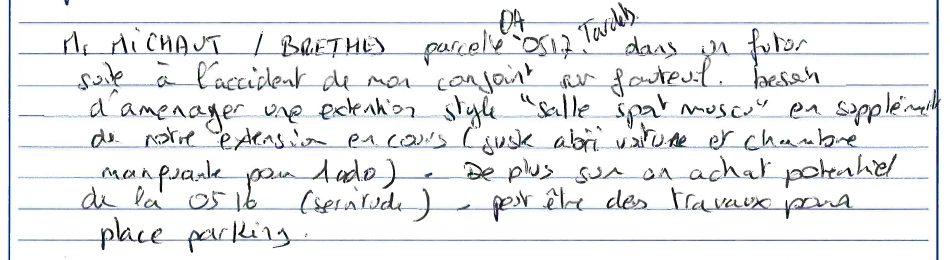 Mr MICHAUT / BRETHES parcelle OA 0517. Tardets. dans un futur
suite à l'accident de mon conjoint sur fauteuil. besoin
d'amenager une extention style "salle sport muscu" en supplément
de notre extension en cours (juste abri voiture et chambre
manquante pour 1 ado). De plus sur un achat potentiel
de la 0516 (servitude) - peut être des travaux pour
place parking.